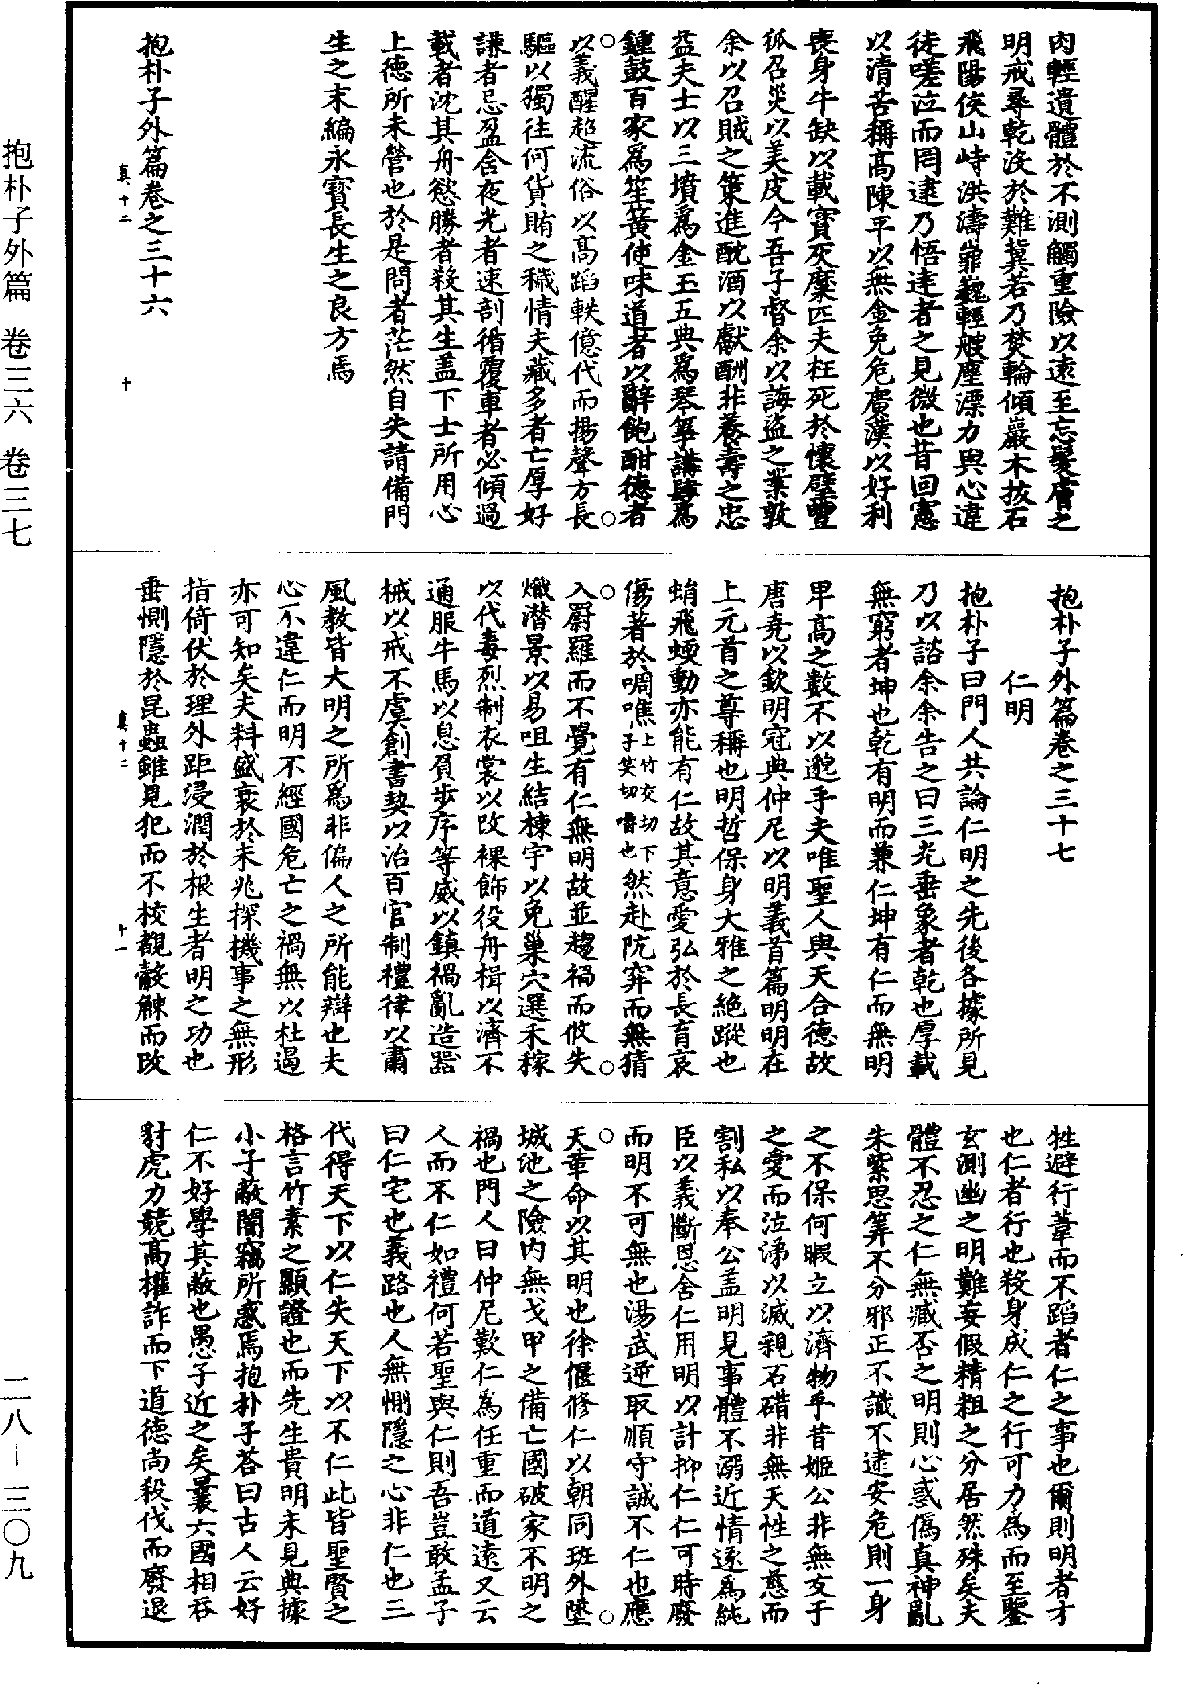 肉輕遺體於不測觸重險以遠至忘髮膚之
明戒尋乾沒於難冀若乃焚輪傾巖木拔石
飛陽侯山峙洪濤嵬巍輕艘塵漂力與心違
徒嗟泣而罔逮乃悟達者之見微也昔回憲
以清苦稱高陳平以無金免危廣漢以好利
喪身牛缺以載寶灰糜匹夫枉死於懷璧豐
狐召災以美皮今吾子督余以誨盜之業敦
余以召賊之策進酖酒以獻酬非養壽之忠
益夫士以三墳為金玉五典為琴箏講肆為
鍾鼓百家為笙簧使味道者以辭飽酣德者
以義醒超流俗以高蹈軼億代而揚聲方長
驅以獨往何貨賄之穢情夫藏多者亡厚好
謙者忌盈含夜光者速剖循覆車者必傾過
載者沈其舟慾勝者殺其生蓋下士所用心
上德所未營也於是問者茫然自失請備門
生之末編永寶長生之良方焉
抱朴子外篇卷之三十六
真十二 十
抱朴子外篇卷之三十七
仁明
抱朴子曰門人共論仁明之先後各據所見
乃以諮余余告之曰三光垂象者乾也厚載
無窮者坤也乾有明而兼仁坤有仁而無明
卑高之數不以邈乎夫唯聖人與天合德故
唐堯以欽明冠典仲尼以明義首篇明明在
上元首之尊稱也明哲保身大雅之絕蹤也
蛸飛蝡動亦能有仁故其意愛弘於長育哀
傷著於啁噍上竹交切下子笑切嚼也然赴阬穽而無猜
入罻羅而不覺有仁無明故並趨禍而攸失
熾潛景以易咀生結棟宇以免巢穴選禾稼
以代毒烈制衣裳以改裸飾役舟楫以濟不
通服牛馬以息負步序等威以鎮禍亂造器
械以戒不虞創書契以治百官制禮律以肅
風教皆大明之所為非偏人之所能辯也夫
心不違仁而明不經國危亡之禍無以杜遏
亦可知矣夫料盛衰於未兆探機事之無形
指倚伏於理外距浸潤於根生者明之功也
垂惻隱於昆蟲雖見犯而不校覩觳觫而改
真十二 十一
牲避行葦而不蹈者仁之事也爾則明者才
也仁者行也殺身成仁之行可力為而至鑒
玄測幽之明難妄假精粗之分居然殊矣夫
體不忍之仁無臧否之明則心惑偽真神亂
朱紫思筭不分邪正不識不逮安危則一身
之不保何暇立以濟物乎昔姬公非無友于
之愛而泣涕以滅親石碏非無天性之慈而
割私以奉公蓋明見事體不溺近情遂為純
臣以義斷恩舍仁用明以計抑仁仁可時廢
而明不可無也湯武逆取順守誠不仁也應
天革命以其明也徐偃修仁以朝同班外墬
城池之險內無戈甲之備亡國破家不明之
禍也門人曰仲尼歎仁為任重而道遠又云
人而不仁如禮何若聖與仁則吾豈敢孟子
曰仁宅也義路也人無惻隱之心非仁也三
代得天下以仁失天下以不仁此皆聖賢之
格言竹素之顯證也而先生貴明未見典據
小子蔽闇竊所惑焉抱朴子荅曰古人云好
仁不好學其蔽也愚子近之矣曩六國相吞
豺虎力競高權詐而下道德尚殺伐而廢退
抱朴子外篇 卷三六 卷三七
二八—三〇九